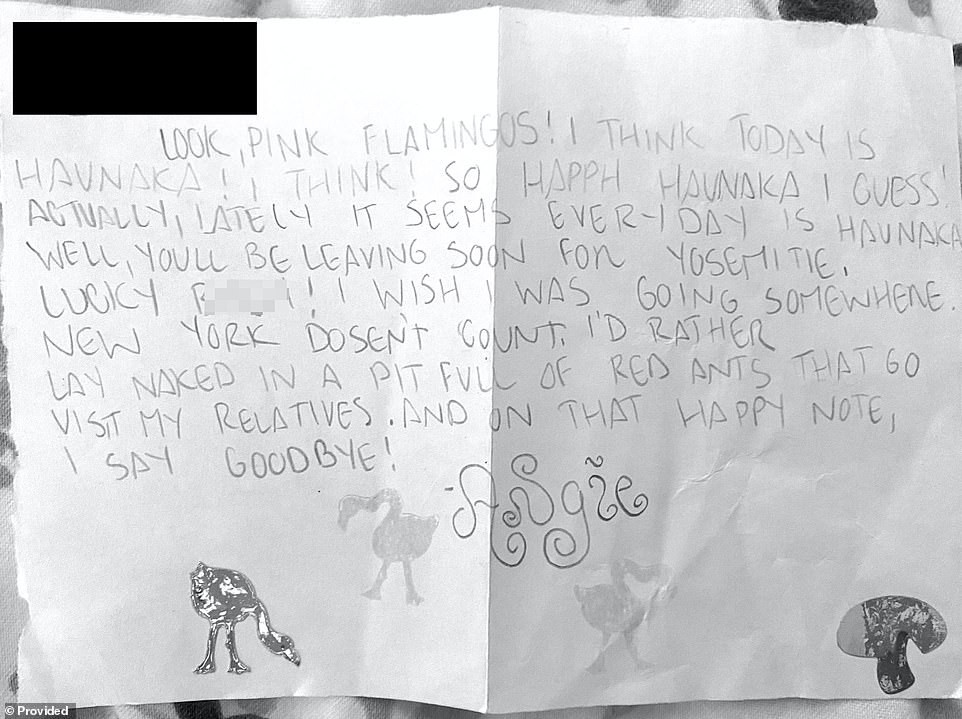 LOOK, PINK FLAMINGOS! I THINK TODAY IS
HAUNAKA! I THINK! SO HAPPH HAUNAKA I GUESS!
ACTUALLY, LATELY IT SEEMS EVERYDAY IS HAUNAKA
WELL, YOULL BE LEAVING SOON FOR YOSEMITIE.
LUCKY ! I WISH I WAS GOING SOMEWHERE.
NEW YORK DOSENT COUNT. I'D RATHER
LAY NAKED IN A PIT FULL OF RED ANTS THAT GO
VISIT MY RELATIVES. AND ON THAT HAPPY NOTE,
I SAY GOODBYE!
-Angie
© Provided